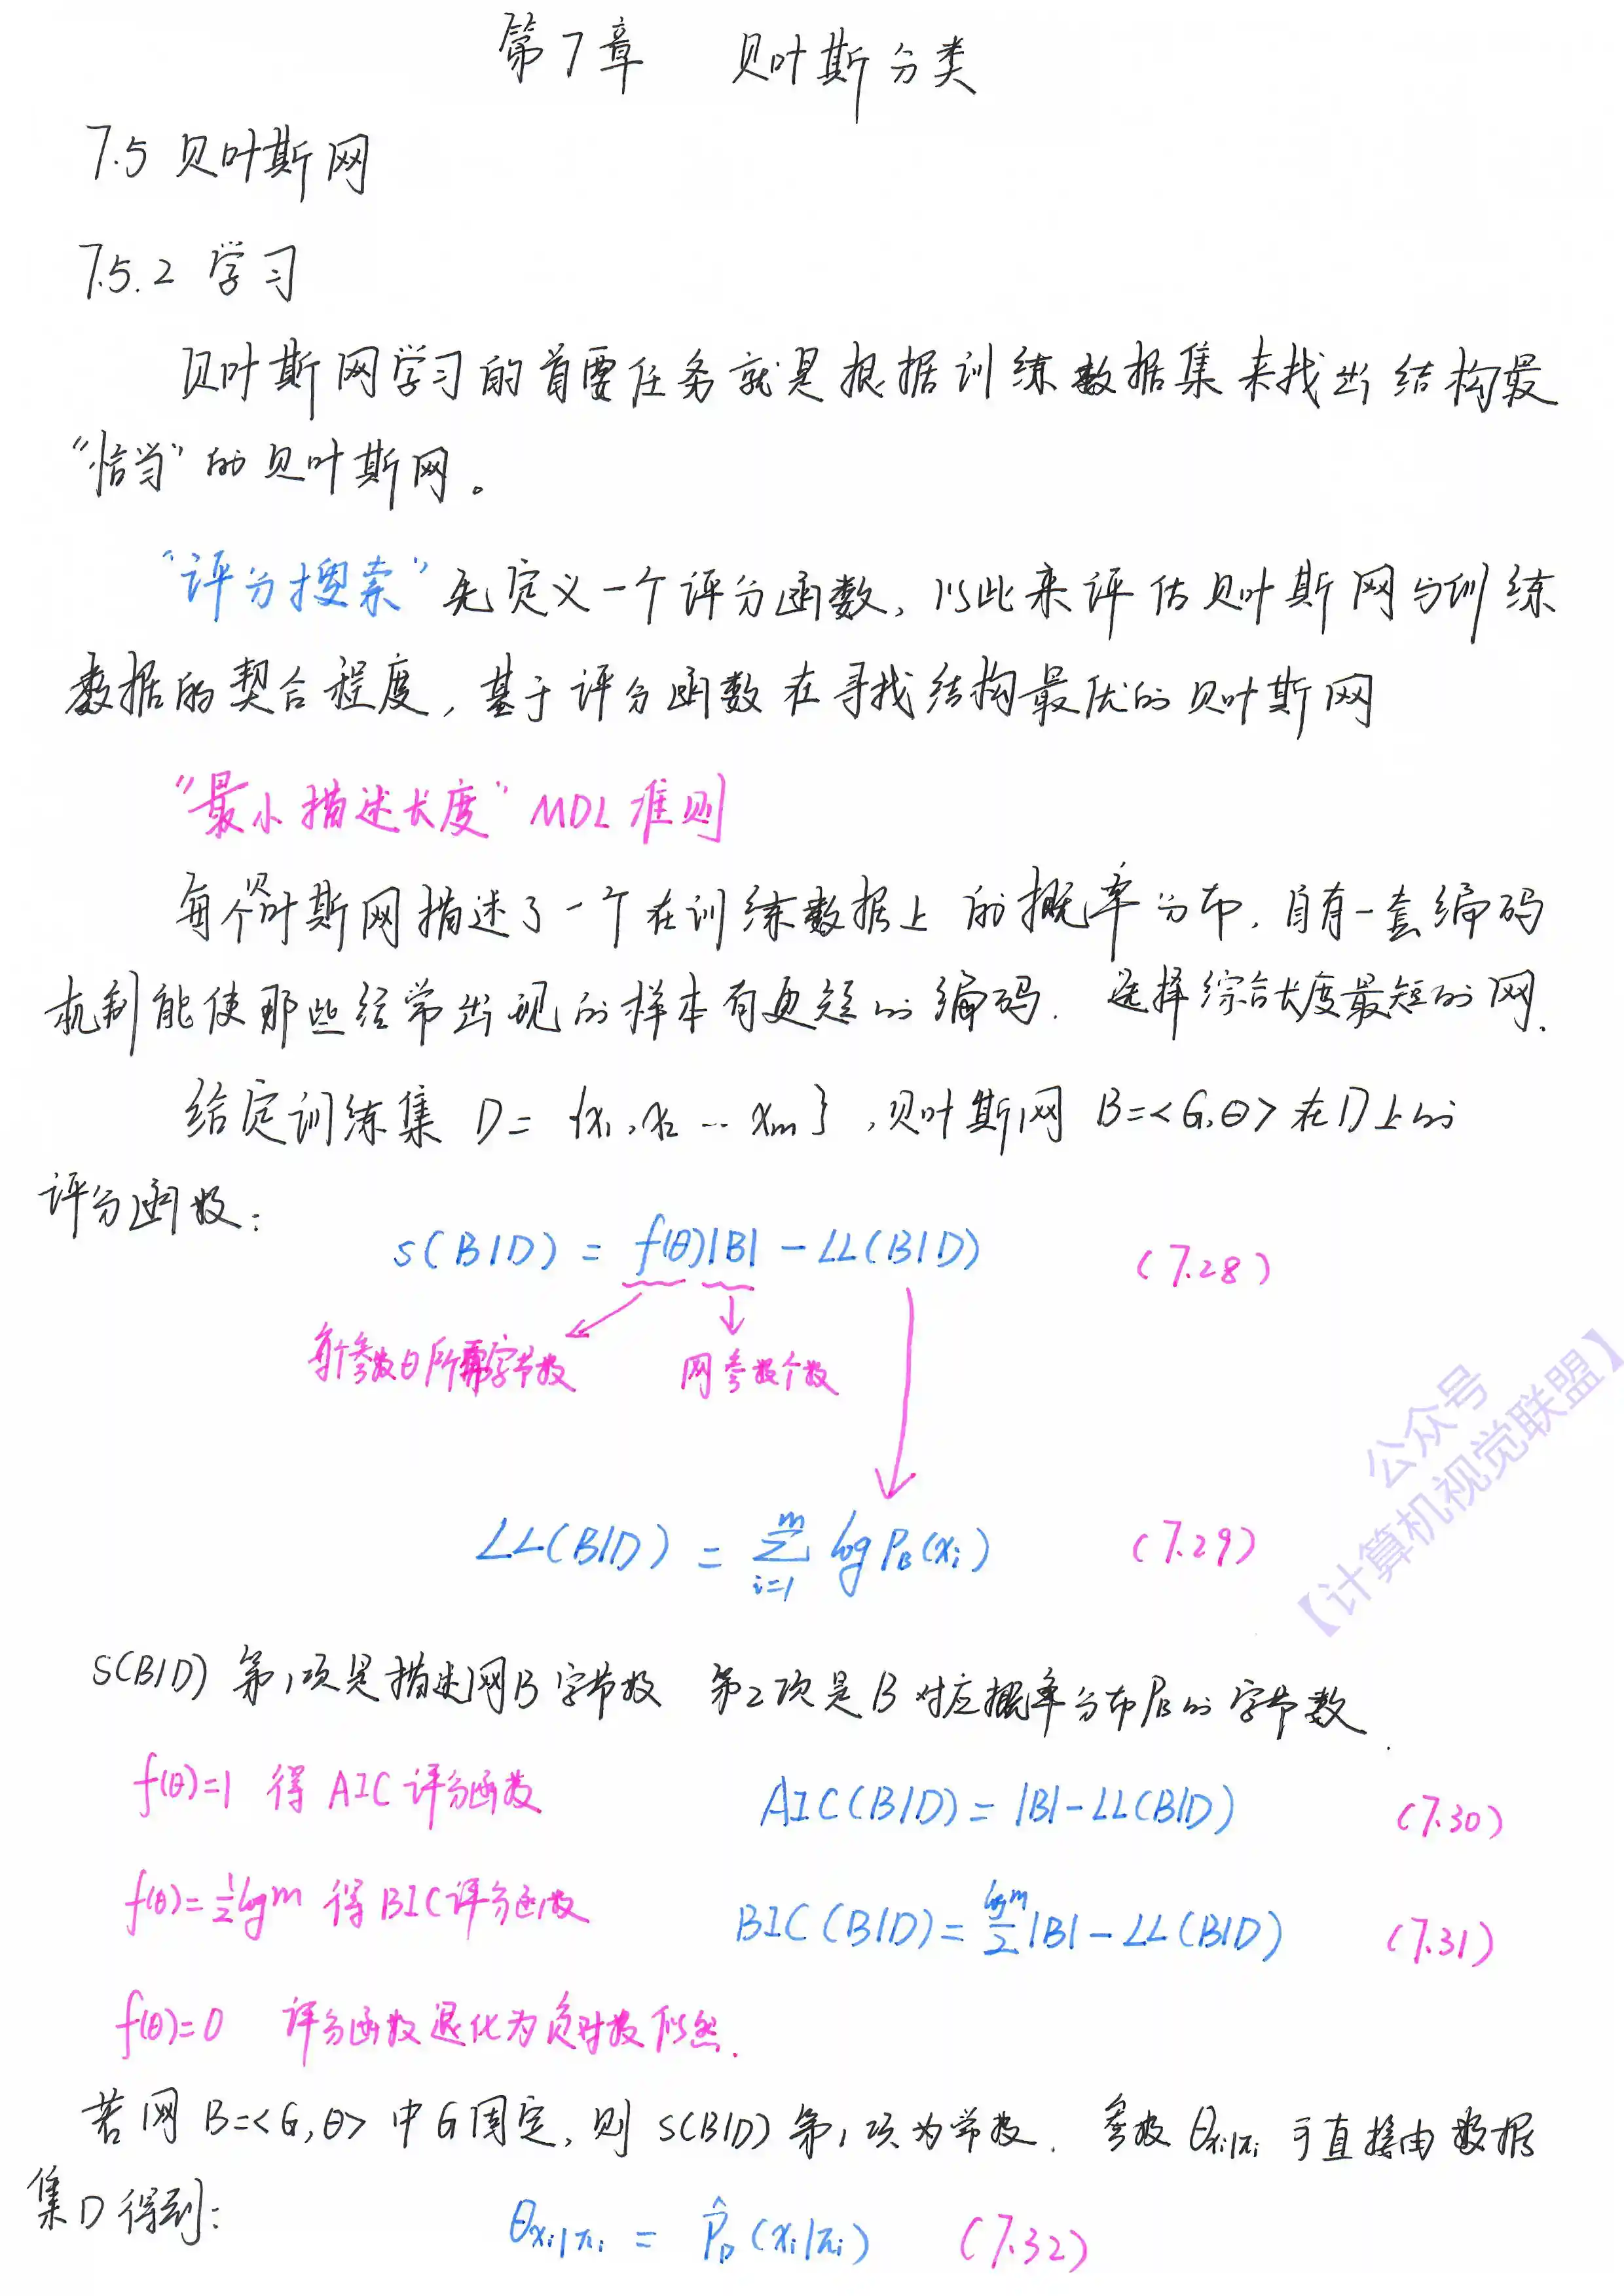 第7章 贝叶斯分类
7.5 贝叶斯网
7.5.2 学习
贝叶斯网学习的首要任务就是根据训练数据集来找出结构最
“恰当”的贝叶斯网。
“评分搜索”先定义一个评分函数,以此来评估贝叶斯网与训练
数据的契合程度,基于评分函数在寻找结构最优的贝叶斯网
“最小描述长度”MDL准则
每个贝叶斯网描述了一个在训练数据上的概率分布,自有一套编码
机制能使那些经常出现的样本有更短的编码. 选择综合长度最短的网.
给定训练集 D = {x₁, x₂ … xₘ} ,贝叶斯网 B=<G,Θ>在D上的
评分函数:
s(B|D) = f(θ)|B| - LL(B|D) (7.28)
每个参数θ所需字节数 网参数个数
LL(B|D) = ∑ᵢ₌₁ᵐ log P_B(xᵢ) (7.29)
S(B|D) 第1项是描述网B字节数 第2项是B对应概率分布P_B的字节数.
f(θ)=1 得AIC评分函数 AIC(B|D) = |B| - LL(B|D) (7.30)
f(θ)=½logm 得BIC评分函数 BIC(B|D) = logm/2 |B| - LL(B|D) (7.31)
f(θ)=0 评分函数退化为负对数似然.
若网 B=<G,θ> 中G固定, 则 S(B|D) 第1项为常数. 参数 θ_{xᵢ|πᵢ} 可直接由数据
集D得到:
θ_{xᵢ|πᵢ} = P̂_D(xᵢ|πᵢ) (7.32)
公众号
【计算机视觉联盟】